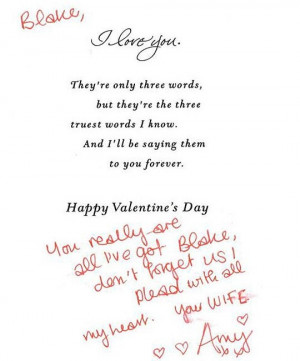 Blake,
I love you.
They're only three words,
but they're the three
truest words I know.
And I'll be saying them
to you forever.
Happy Valentine's Day
You really are
all I've got Blake,
don't forget us!
Plead with all
my heart. Your WIFE
Amy